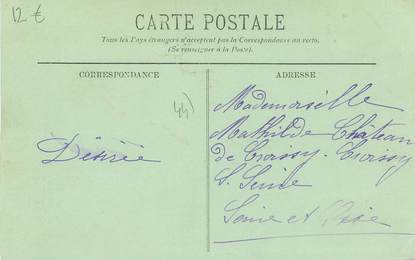 12 €
CARTE POSTALE
Tous les Pays étrangers n'acceptent pas la Correspondance au recto.
(Se renseigner à la Poste).
CORRESPONDANCE
ADRESSE
44)
Désirée
Mademoiselle
Mathilde Château
de Croissy. Croissy
S. Seine
Seine et Oise